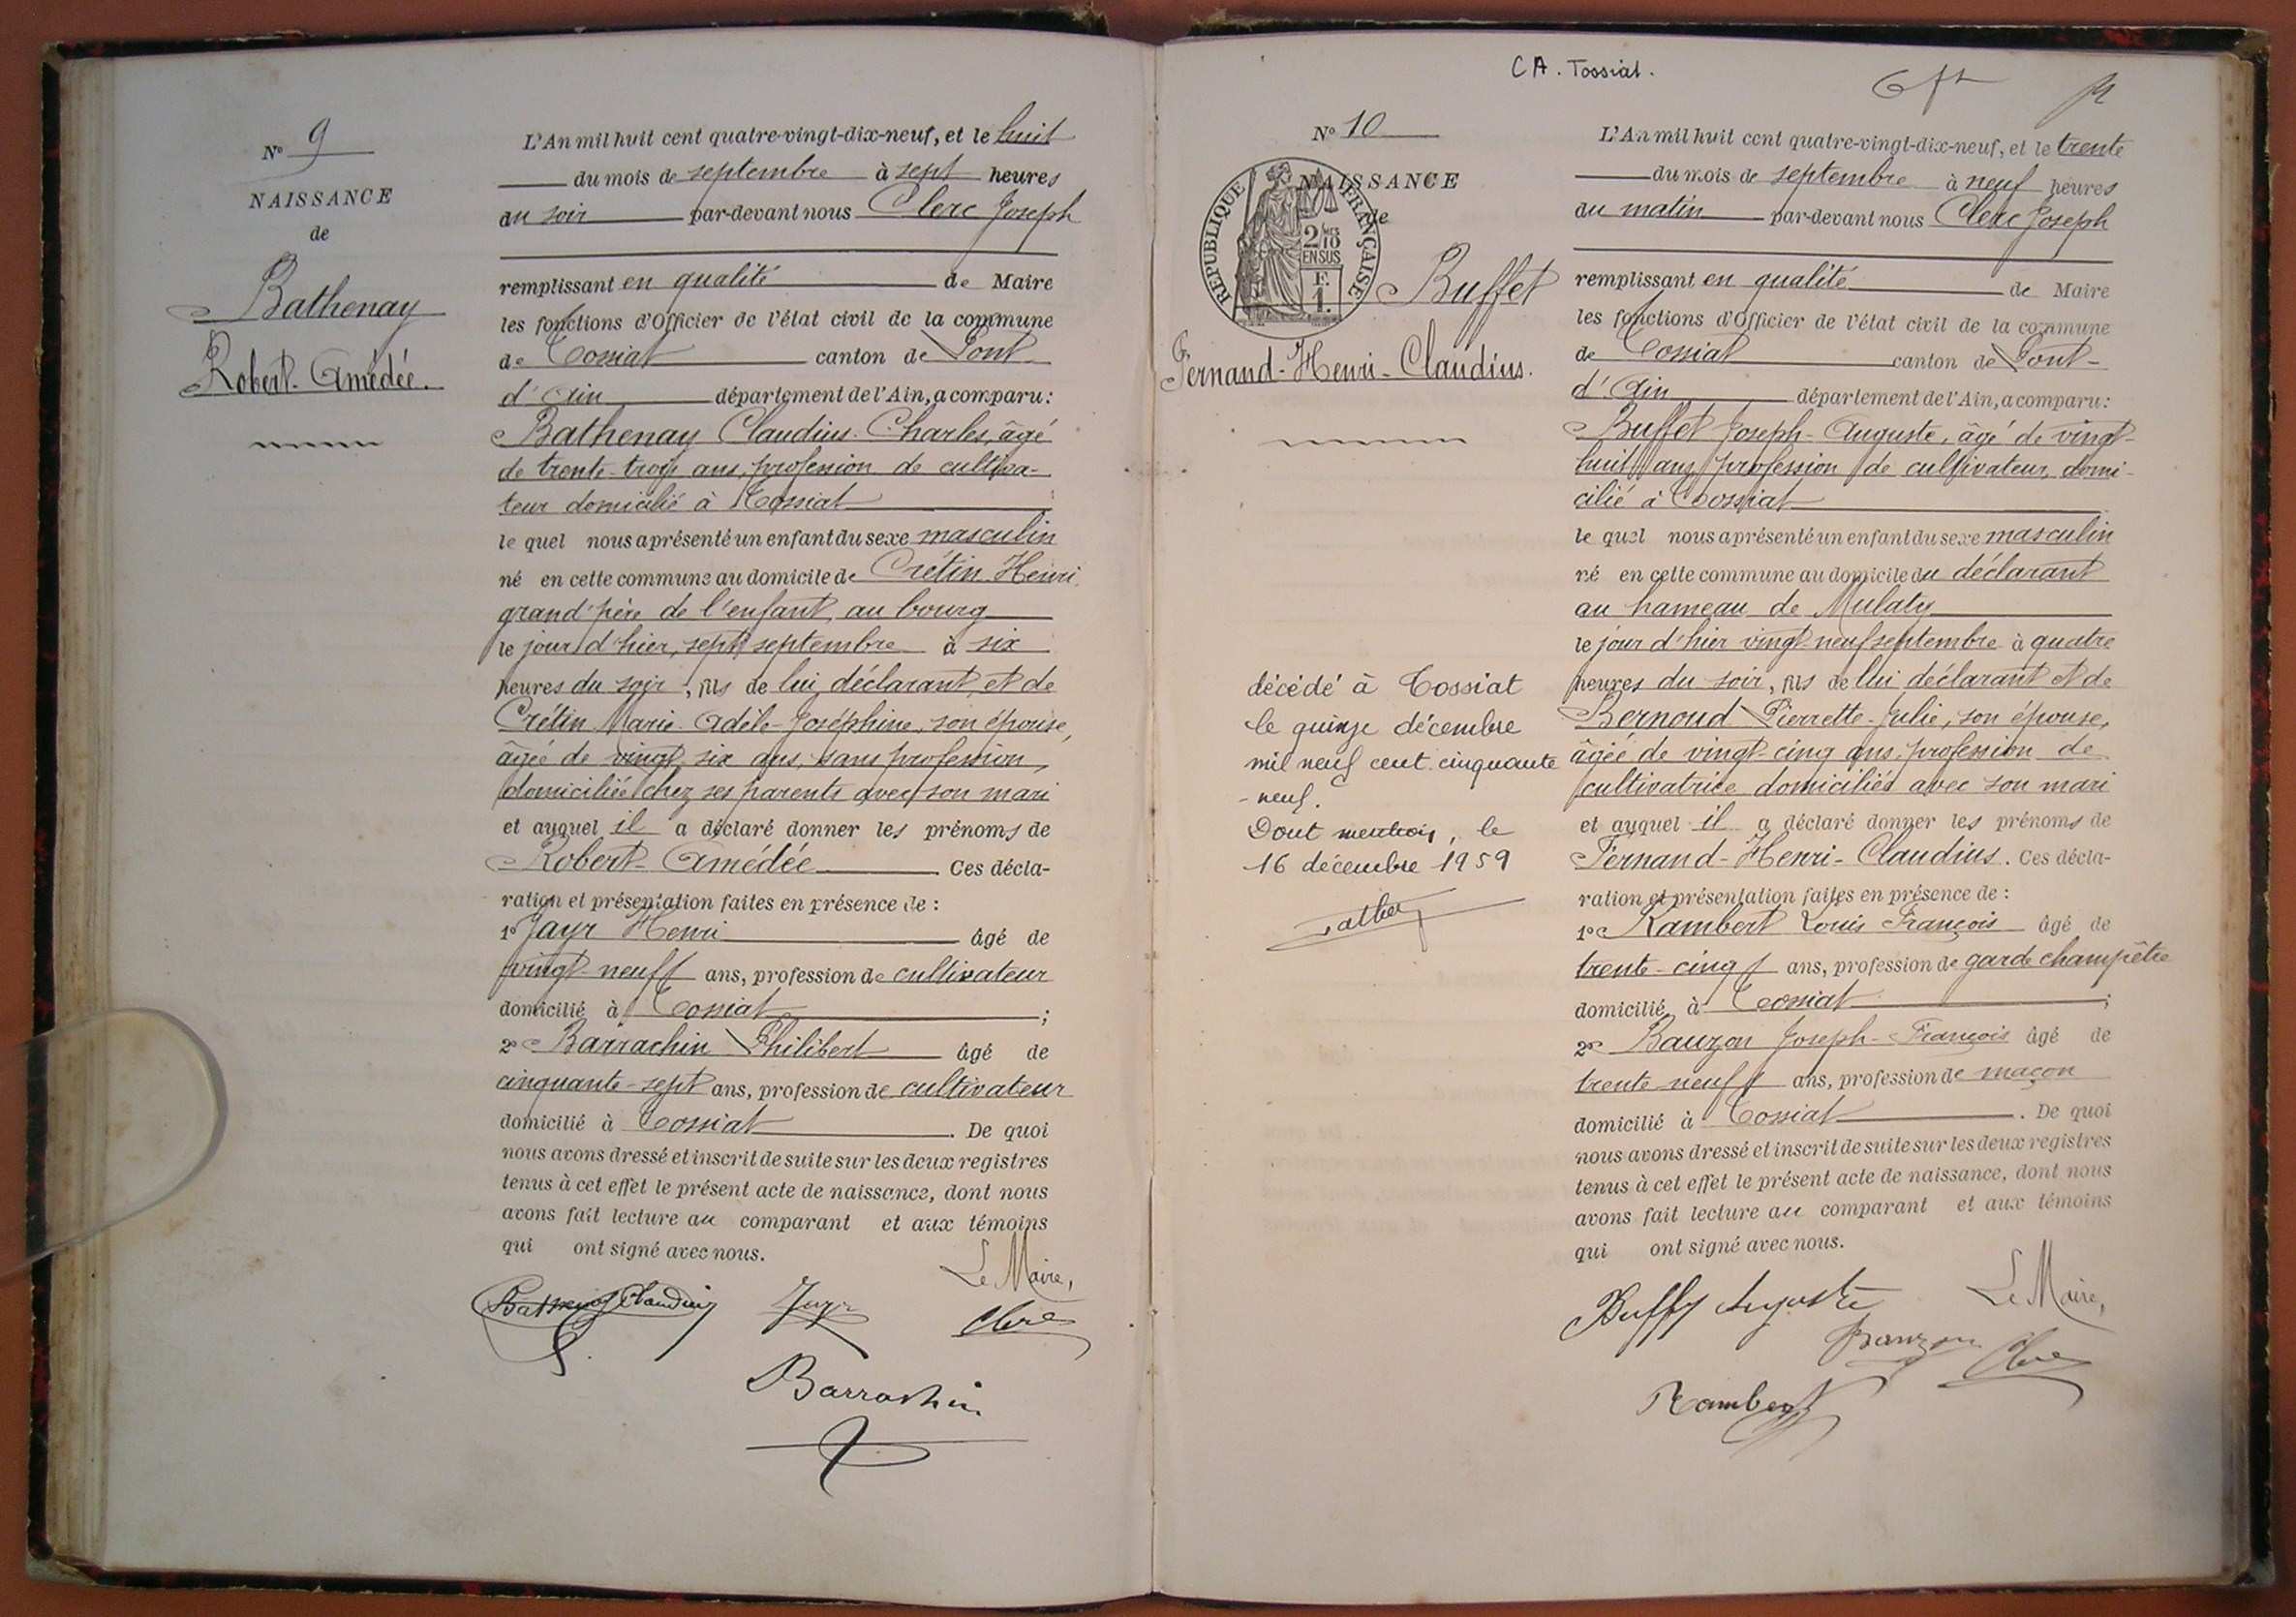 N° 9
NAISSANCE
de
Bathenay
Robert-Amédée.
L'An mil huit cent quatre-vingt-dix-neuf, et le huit
du mois de septembre à sept heures
du soir par-devant nous Clerc Joseph
remplissant en qualité de Maire
les fonctions d'Officier de l'état civil de la commune
de Tossiat canton de Pont
d'Ain département de l'Ain, a comparu:
Bathenay Claudius-Charles, âgé
de trente-trois ans, profession de cultiva-
teur domicilié à Tossiat
le quel nous a présenté un enfant du sexe masculin
né en cette commune au domicile de Crétin Henri,
grand'père de l'enfant, au bourg
le jour d'hier, sept septembre à six
heures du soir, fils de lui, déclarant, et de
Crétin Marie-Adèle-Joséphine, son épouse,
âgée de vingt-six ans, sans profession,
domiciliée chez ses parents avec son mari
et auquel il a déclaré donner les prénoms de
Robert-Amédée. Ces décla-
ration et présentation faites en présence de :
1° Jayr Henri âgé de
vingt-neuf ans, profession de cultivateur
domicilié à Tossiat ;
2° Barrachin Philibert âgé de
cinquante-sept ans, profession de cultivateur
domicilié à Tossiat. De quoi
nous avons dressé et inscrit de suite sur les deux registres
tenus à cet effet le présent acte de naissance, dont nous
avons fait lecture au comparant et aux témoins
qui ont signé avec nous.
Le Maire,
Bathenay Claudius Jayr Clerc
Barrachin
CA. Tossiat.
N° 10
NAISSANCE
de
RÉPUBLIQUE FRANÇAISE
2/10
EN SUS
F.
1.
Buffet
Fernand-Henri-Claudius.
décédé à Tossiat
le quinze décembre
mil neuf cent cinquante
-neuf.
Dont mention, le
16 décembre 1959
L'An mil huit cent quatre-vingt-dix-neuf, et le trente
du mois de septembre à neuf heures
du matin par-devant nous Clerc Joseph
remplissant en qualité de Maire
les fonctions d'Officier de l'état civil de la commune
de Tossiat canton de Pont-
d'Ain département de l'Ain, a comparu:
Buffet Joseph-Auguste, âgé de vingt-
huit ans, profession de cultivateur, domi-
cilié à Tossiat
le quel nous a présenté un enfant du sexe masculin
né en cette commune au domicile du déclarant
au hameau de Mulaty
le jour d'hier vingt-neuf septembre à quatre
heures du soir, fils de lui déclarant et de
Bernoud Pierrette-Julie, son épouse,
âgée de vingt-cinq ans, profession de
cultivatrice domiciliée avec son mari
et auquel il a déclaré donner les prénoms de
Fernand-Henri-Claudius. Ces décla-
ration et présentation faites en présence de :
1° Rambert Louis François âgé de
trente-cinq ans, profession de garde champêtre
domicilié à Tossiat ;
2° Bauzon Joseph-François âgé de
trente neuf ans, profession de maçon
domicilié à Tossiat. De quoi
nous avons dressé et inscrit de suite sur les deux registres
tenus à cet effet le présent acte de naissance, dont nous
avons fait lecture au comparant et aux témoins
qui ont signé avec nous.
Le Maire,
Buffet Auguste
Bauzon Clerc
Rambert